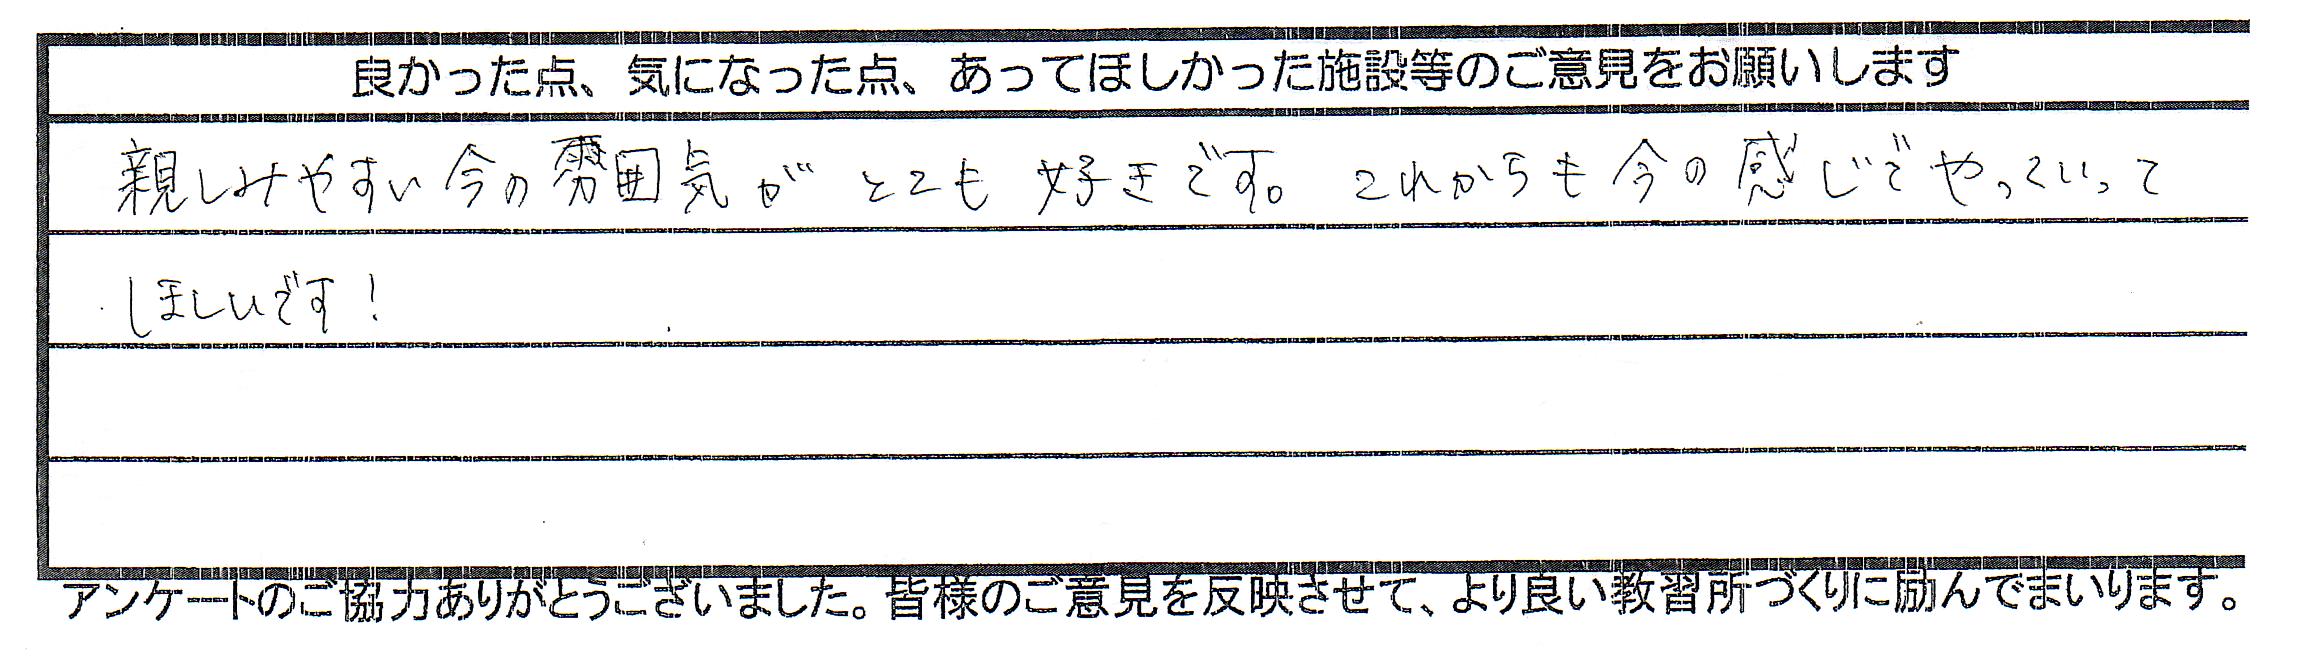 良かった点、気になった点、あってほしかった施設等のご意見をお願いします
親しみやすい今の雰囲気がとても好きです。これからも今の感じでやっていって
ほしいです！
アンケートのご協力ありがとうございました。皆様のご意見を反映させて、より良い教習所づくりに励んでまいります。